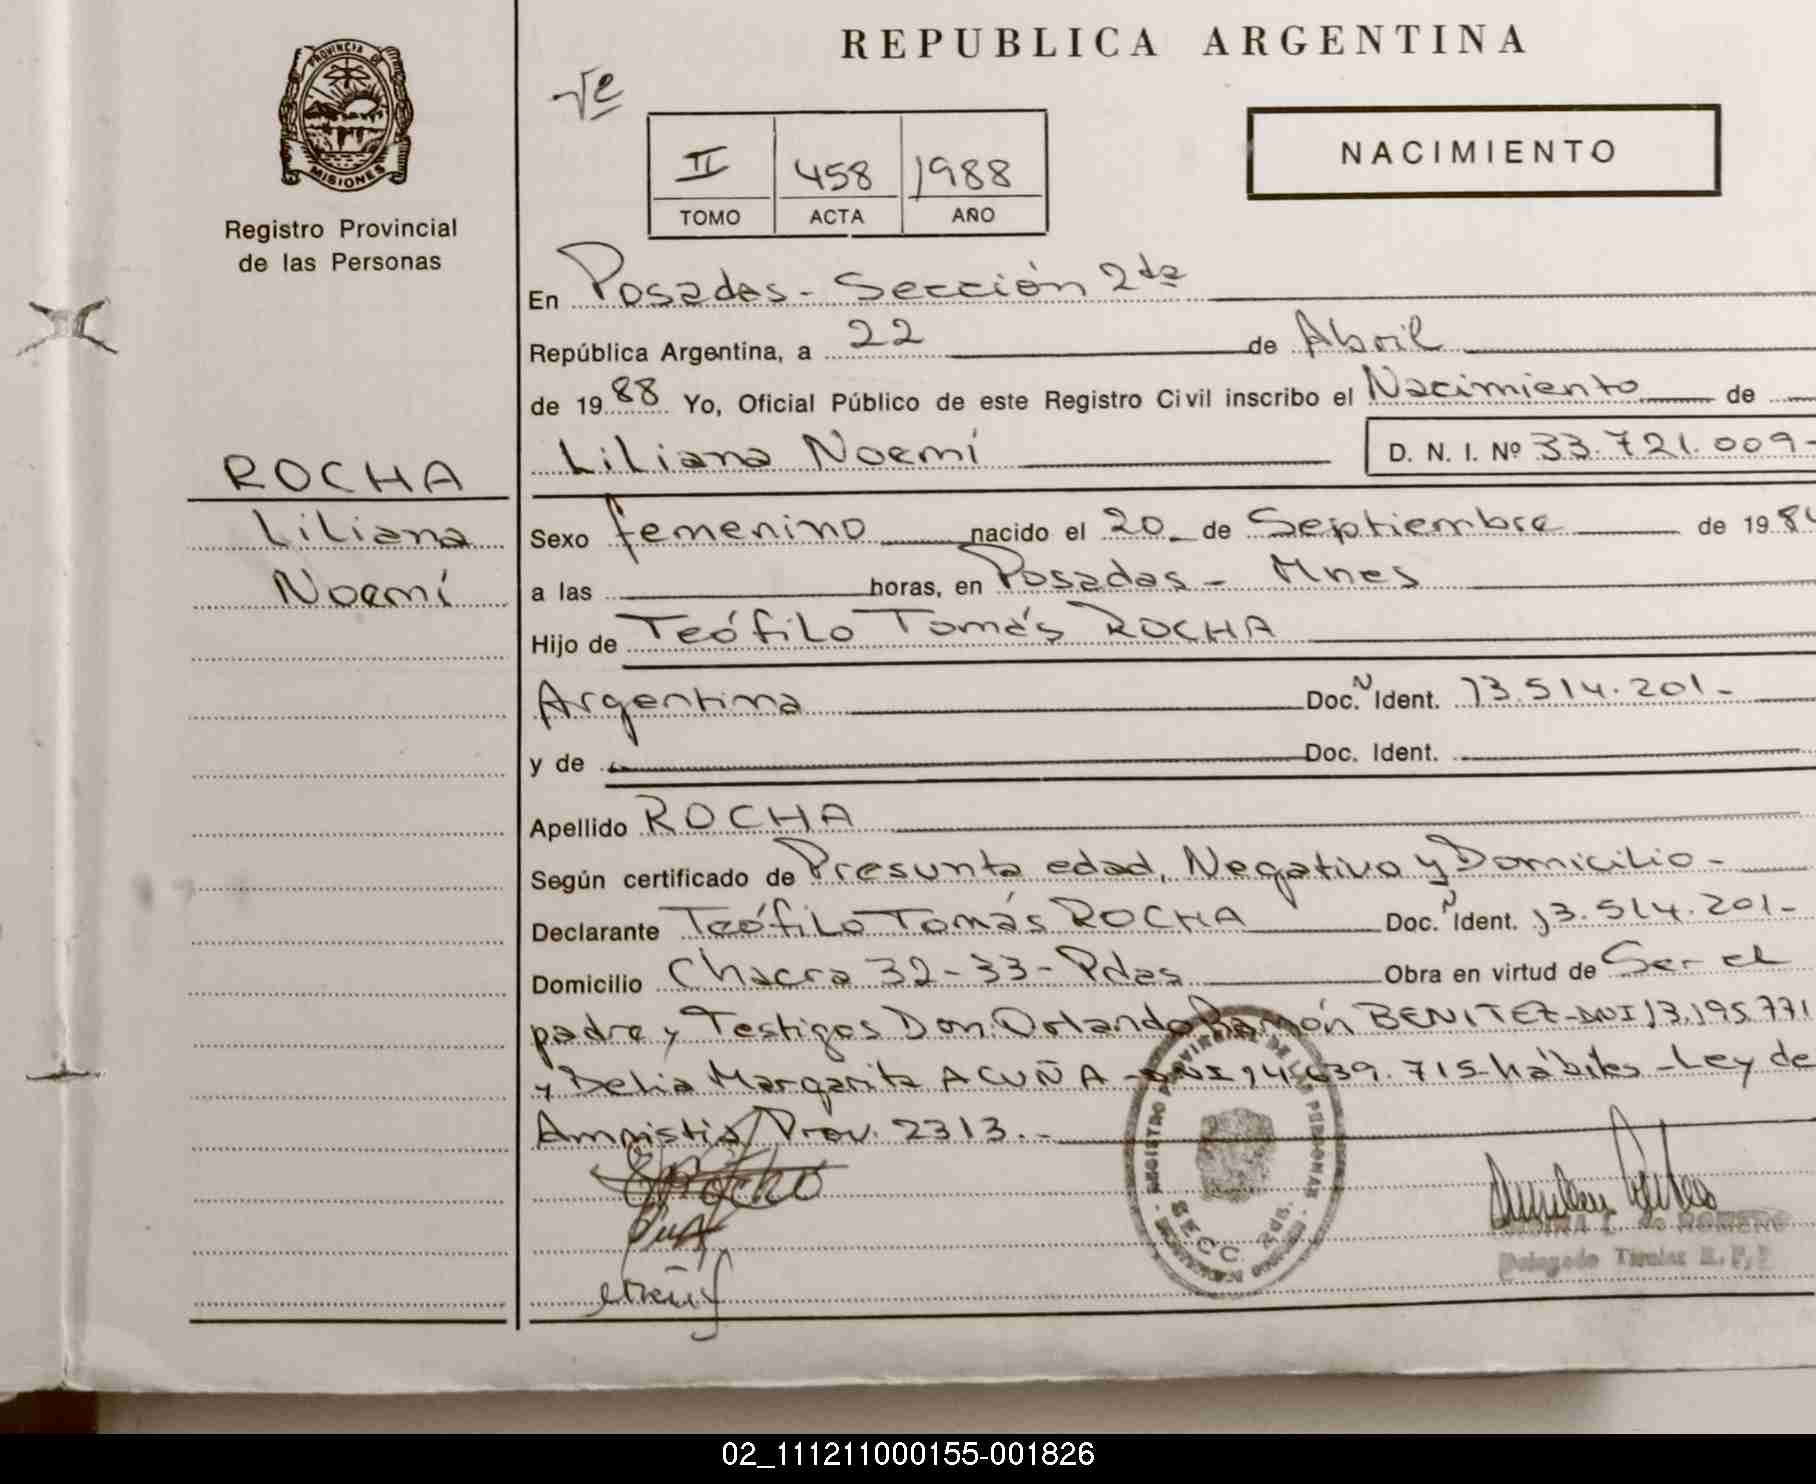 REPUBLICA ARGENTINA
PROVINCIA
MISIONES
Registro Provincial
de las Personas
II 458 1988
TOMO ACTA AÑO
NACIMIENTO
En Posadas - Sección 2da
República Argentina, a 22 de Abril
de 1988 Yo, Oficial Público de este Registro Civil inscribo el Nacimiento de
Liliana Noemí D. N. I. Nº 33.721.009-
ROCHA
Liliana
Noemí
Sexo femenino nacido el 20 de Septiembre de 19
a las horas, en Posadas - Mnes
Hijo de Teófilo Tomás ROCHA
Argentina Doc. N Ident. 13.514.201-
y de Doc. Ident.
Apellido ROCHA
Según certificado de Presunta edad, Negativo y Domicilio -
Declarante Teófilo Tomás ROCHA Doc. N Ident. 13.514.201-
Domicilio Chacra 32-33- Pdas Obra en virtud de Ser el
padre y Testigos Don Orlando Ramón BENITEZ-DNI 13.195.771
y Delia Margarita ACUÑA - DNI 14.639.715-hábiles - Ley de
Amnistia Prov. 2313.-
REGISTRO PROVINCIAL DE LAS PERSONAS
SECC. 2da.
ROMERO
Delegado Titular R.P.P.
02_111211000155-001826